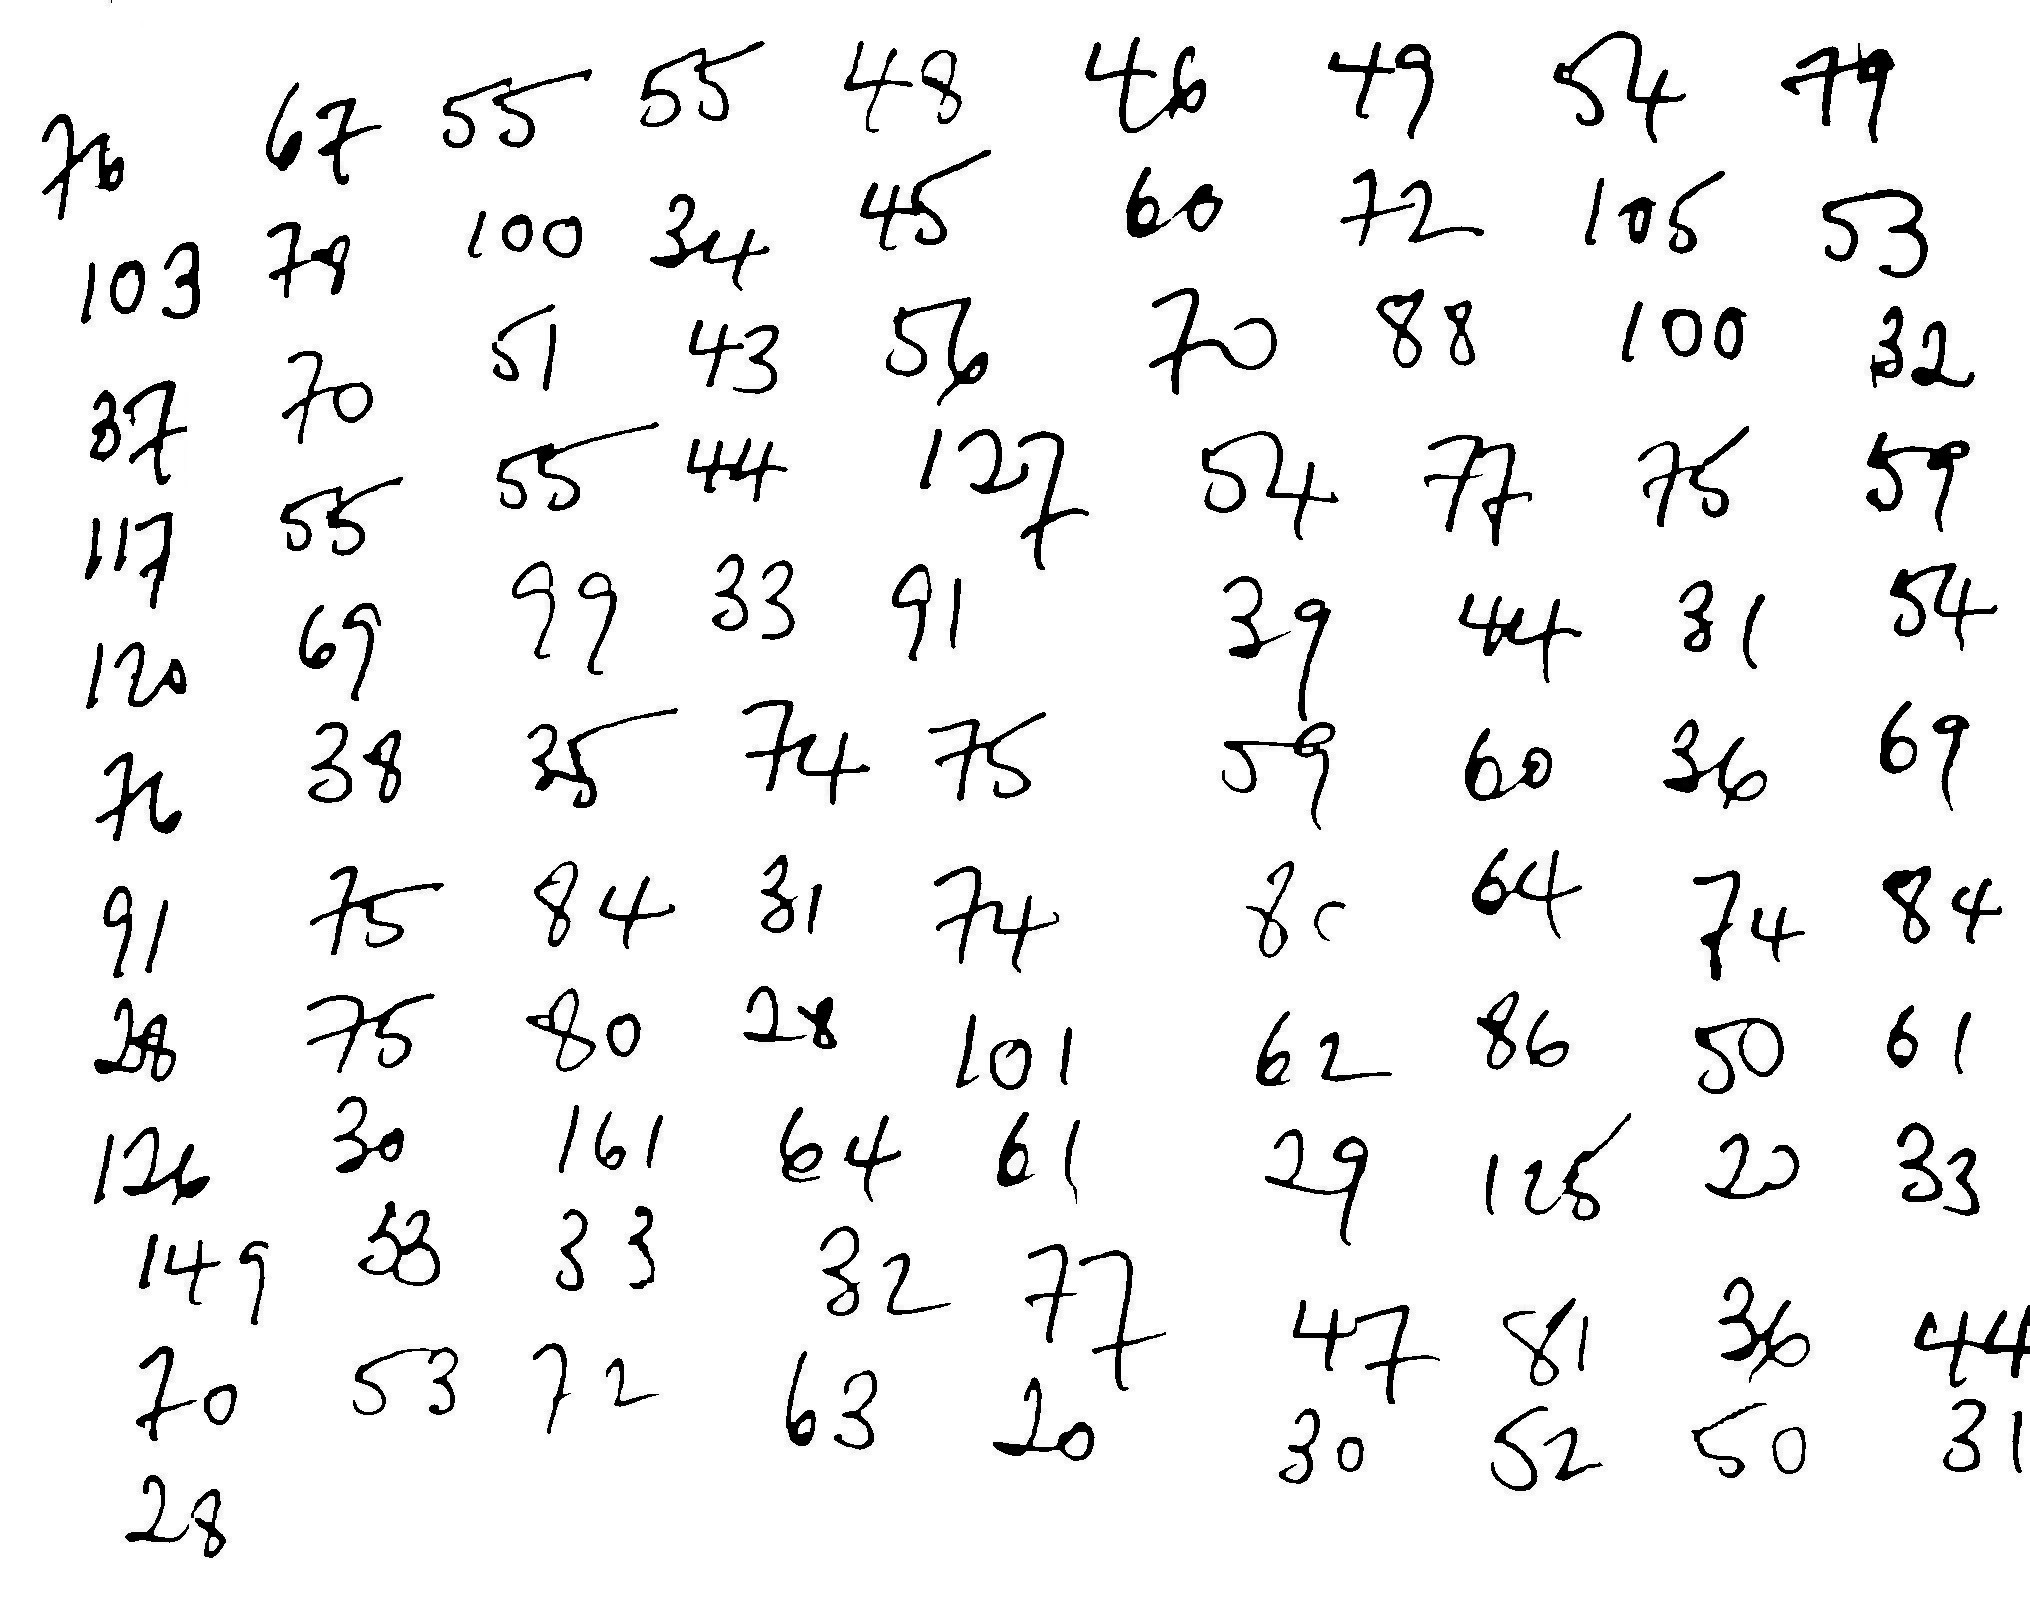 76 67 55 55 48 46 49 54 79
103 78 100 34 45 60 72 105 53
37 70 51 43 56 70 88 100 32
117 55 55 44 127 54 77 75 59
120 69 99 33 91 39 44 31 54
76 38 35 74 75 59 60 36 69
91 75 84 31 74 64 74 84
28 75 80 28 101 62 86 50 61
126 30 161 64 61 29 125 20 33
149 53 33 32 77 47 81 36 44
70 53 72 63 20 30 52 50 31
28